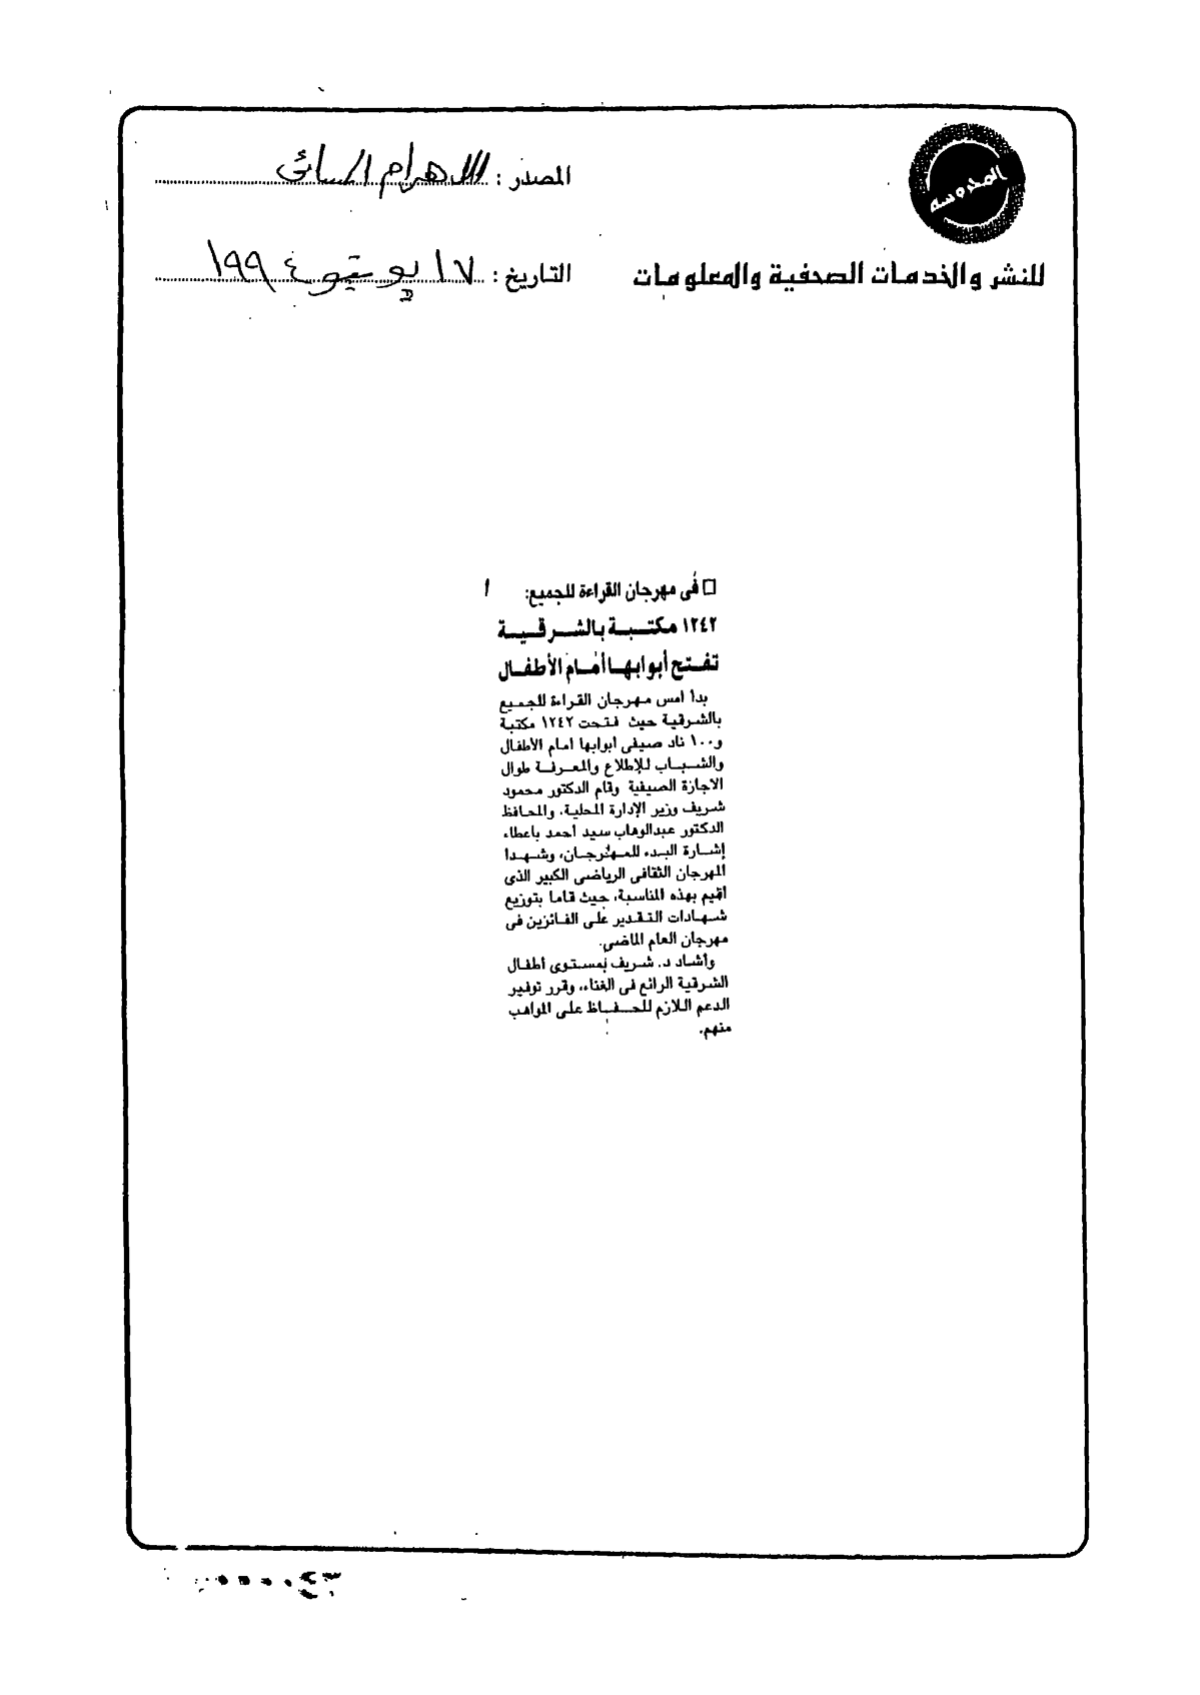 المحروسة
للنشر والخدمات الصحفية والمعلومات
المصدر : الاهرام المسائى
التاريخ : ١٧ يونيو ١٩٩٤
□ فى مهرجان القراءة للجميع:
١٢٤٢ مكتبة بالشرقية
تفتح أبوابها أمام الأطفال
بدأ امس مهرجان القراءة للجميع
بالشرقية حيث فتحت ١٢٤٢ مكتبة
و١٠٠ ناد صيفى ابوابها امام الأطفال
والشباب للإطلاع والمعرفة طوال
الاجازة الصيفية وقام الدكتور محمود
شريف وزير الإدارة المحلية، والمحافظ
الدكتور عبدالوهاب سيد أحمد باعطاء
إشارة البدء للمهرجان، وشهدا
المهرجان الثقافى الرياضى الكبير الذى
اقيم بهذه المناسبة، حيث قاما بتوزيع
شهادات التقدير على الفائزين فى
مهرجان العام الماضى.
وأشاد د. شريف بمستوى اطفال
الشرقية الرائع فى الغناء، وقرر توفير
الدعم اللازم للحفاظ على المواهب
منهم.